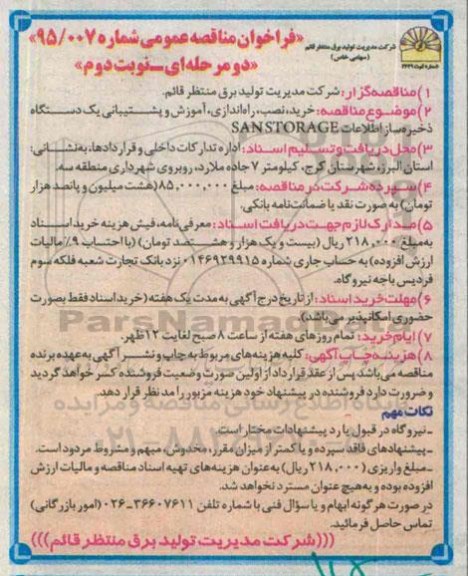 «فراخوان مناقصه عمومی شماره ۹۵/۰۰۷»
«دو مرحله‌ای ـ نوبت دوم»
شرکت مدیریت تولید برق منتظر قائم
(سهامی خاص)
۱) مناقصه گزار: شرکت مدیریت تولید برق منتظر قائم.
۲) موضوع مناقصه: خرید، نصب، راه‌اندازی، آموزش و پشتیبانی یک دستگاه
ذخیره‌ساز اطلاعات SANSTORAGE
۳) محل دریافت و تسلیم اسناد: اداره تدارکات داخلی و قراردادها، به نشانی:
استان البرز، شهرستان کرج، کیلومتر ۷ جاده ملارد، روبروی شهرداری منطقه سه.
۴) سپرده شرکت در مناقصه: مبلغ ۸۵,۰۰۰,۰۰۰ (هشت میلیون و پانصد هزار
تومان) به صورت نقد یا ضمانت‌نامه بانکی.
۵) مدارک لازم جهت دریافت اسناد: معرفی‌نامه، فیش هزینه خرید اسناد
به مبلغ ۲۱۸,۰۰۰ ریال (بیست و یک هزار و هشتصد تومان) (با احتساب ۹٪ مالیات
ارزش افزوده) به حساب جاری شماره ۰۱۴۶۹۲۹۹۱۵ نزد بانک تجارت شعبه فلکه سوم
فردیس باجه نیروگاه.
۶) مهلت خرید اسناد: از تاریخ درج آگهی به مدت یک هفته (خرید اسناد فقط بصورت
حضوری امکانپذیر می‌باشد).
۷) ایام خرید: تمام روزهای هفته از ساعت ۸ صبح لغایت ۱۲ ظهر.
۸) هزینه چاپ آگهی: کلیه هزینه‌های مربوط به چاپ و نشر آگهی به عهده برنده
مناقصه می‌باشد پس از عقد قرارداد از اولین صورت وضعیت فروشنده کسر خواهد گردید
و ضرورت دارد فروشنده در پیشنهاد خود هزینه مزبور را مد نظر قرار دهد.
نکات مهم
ـ نیروگاه در قبول یا رد پیشنهادات مختار است.
ـ پیشنهادهای فاقد سپرده و یا کمتر از میزان مقرر، مخدوش، مبهم و مشروط مردود است.
ـ مبلغ واریزی (۲۱۸,۰۰۰ ریال) به عنوان هزینه‌های تهیه اسناد مناقصه و مالیات ارزش
افزوده بوده و به هیچ عنوان مسترد نخواهد شد.
در صورت هر گونه ابهام و یا سؤال فنی با شماره تلفن ۳۶۶۰۷۶۱۱-۰۲۶ (امور بازرگانی)
تماس حاصل فرمائید.
(((شرکت مدیریت تولید برق منتظر قائم)))
ParsNamadData